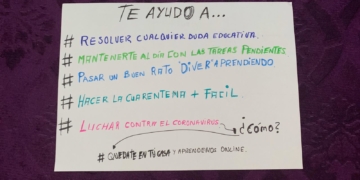 TE AYUDO A...
# RESOLVER CUALQUIER DUDA EDUCATIVA.
# MANTENERTE AL DÍA CON LAS TAREAS PENDIENTES.
# PASAR UN BUEN RATO "DIVER"APRENDIENDO
# HACER LA CUARENTENA + FACIL.
# LUCHAR CONTRA EL CORONAVIRUS
¿CÓMO?
# QUEDATE EN TÚ CASA Y APRENDEMOS ONLINE.